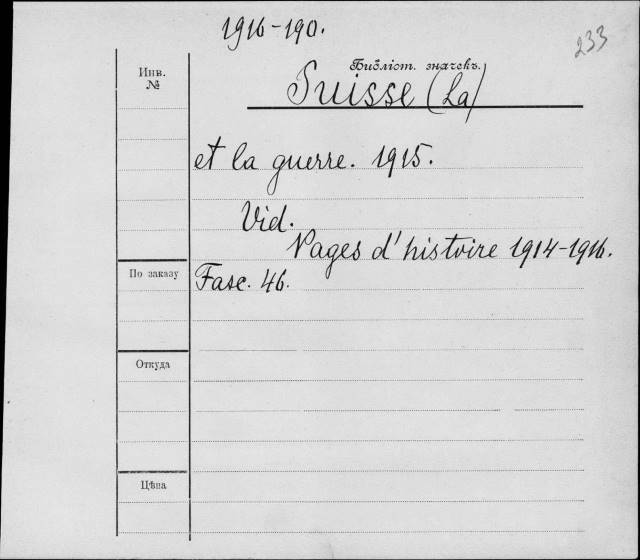 1916-190.
233
Библіот. значекъ.
Инв.
№
Suisse (La)
et la guerre. 1915.
Vid.
Pages d'histoire 1914-1916.
По заказу
Fasc. 46.
Откуда
Цѣна